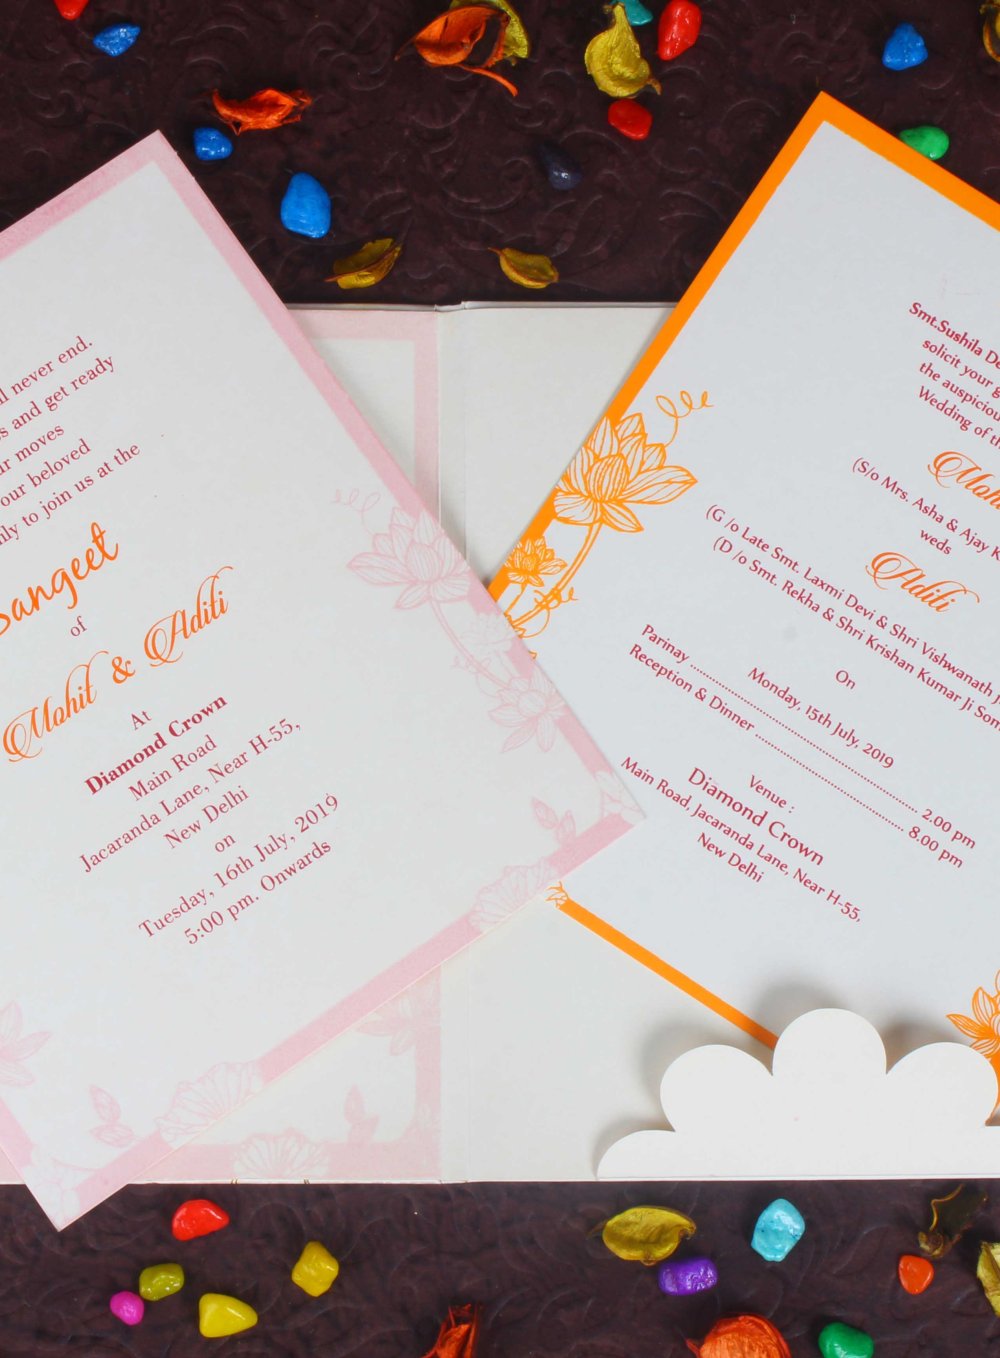 never end.
and get ready
moves
our beloved
to join us at the
Sangeet
of
Mohit & Aditi
At
Diamond Crown
Main Road
Jacaranda Lane, Near H-55,
New Delhi
on
Tuesday, 16th July, 2019
5:00 pm. Onwards
Smt.Sushila
solicit your
the
Wedding of
(S/o Mrs. Asha & Ajay
weds
Aditi
(G /o Late Smt. Laxmi Devi & Shri Vishwanath
(D /o Smt. Rekha & Shri Krishan Kumar Ji
On
Monday, 15th July, 2019
Parinay .......................................................... 2.00 pm
Reception & Dinner ...................................... 8.00 pm
Venue :
Diamond Crown
Main Road, Jacaranda Lane, Near H-55,
New Delhi